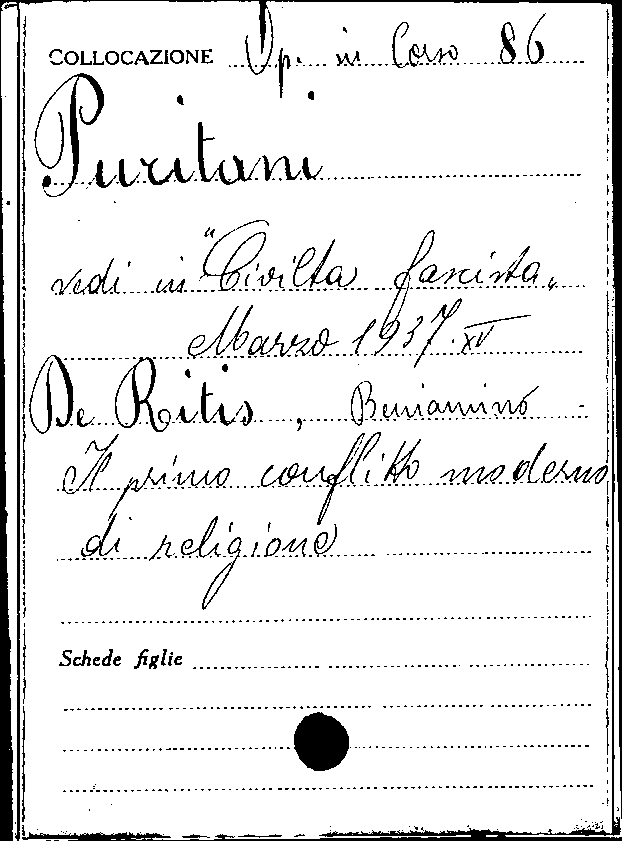 COLLOCAZIONE Op. in Corso 86
Puritani
vedi in "Civiltà fascista„
Marzo 1937.XV
De Ritis, Beniamino -
Il primo conflitto moderno
di religione
Schede figlie